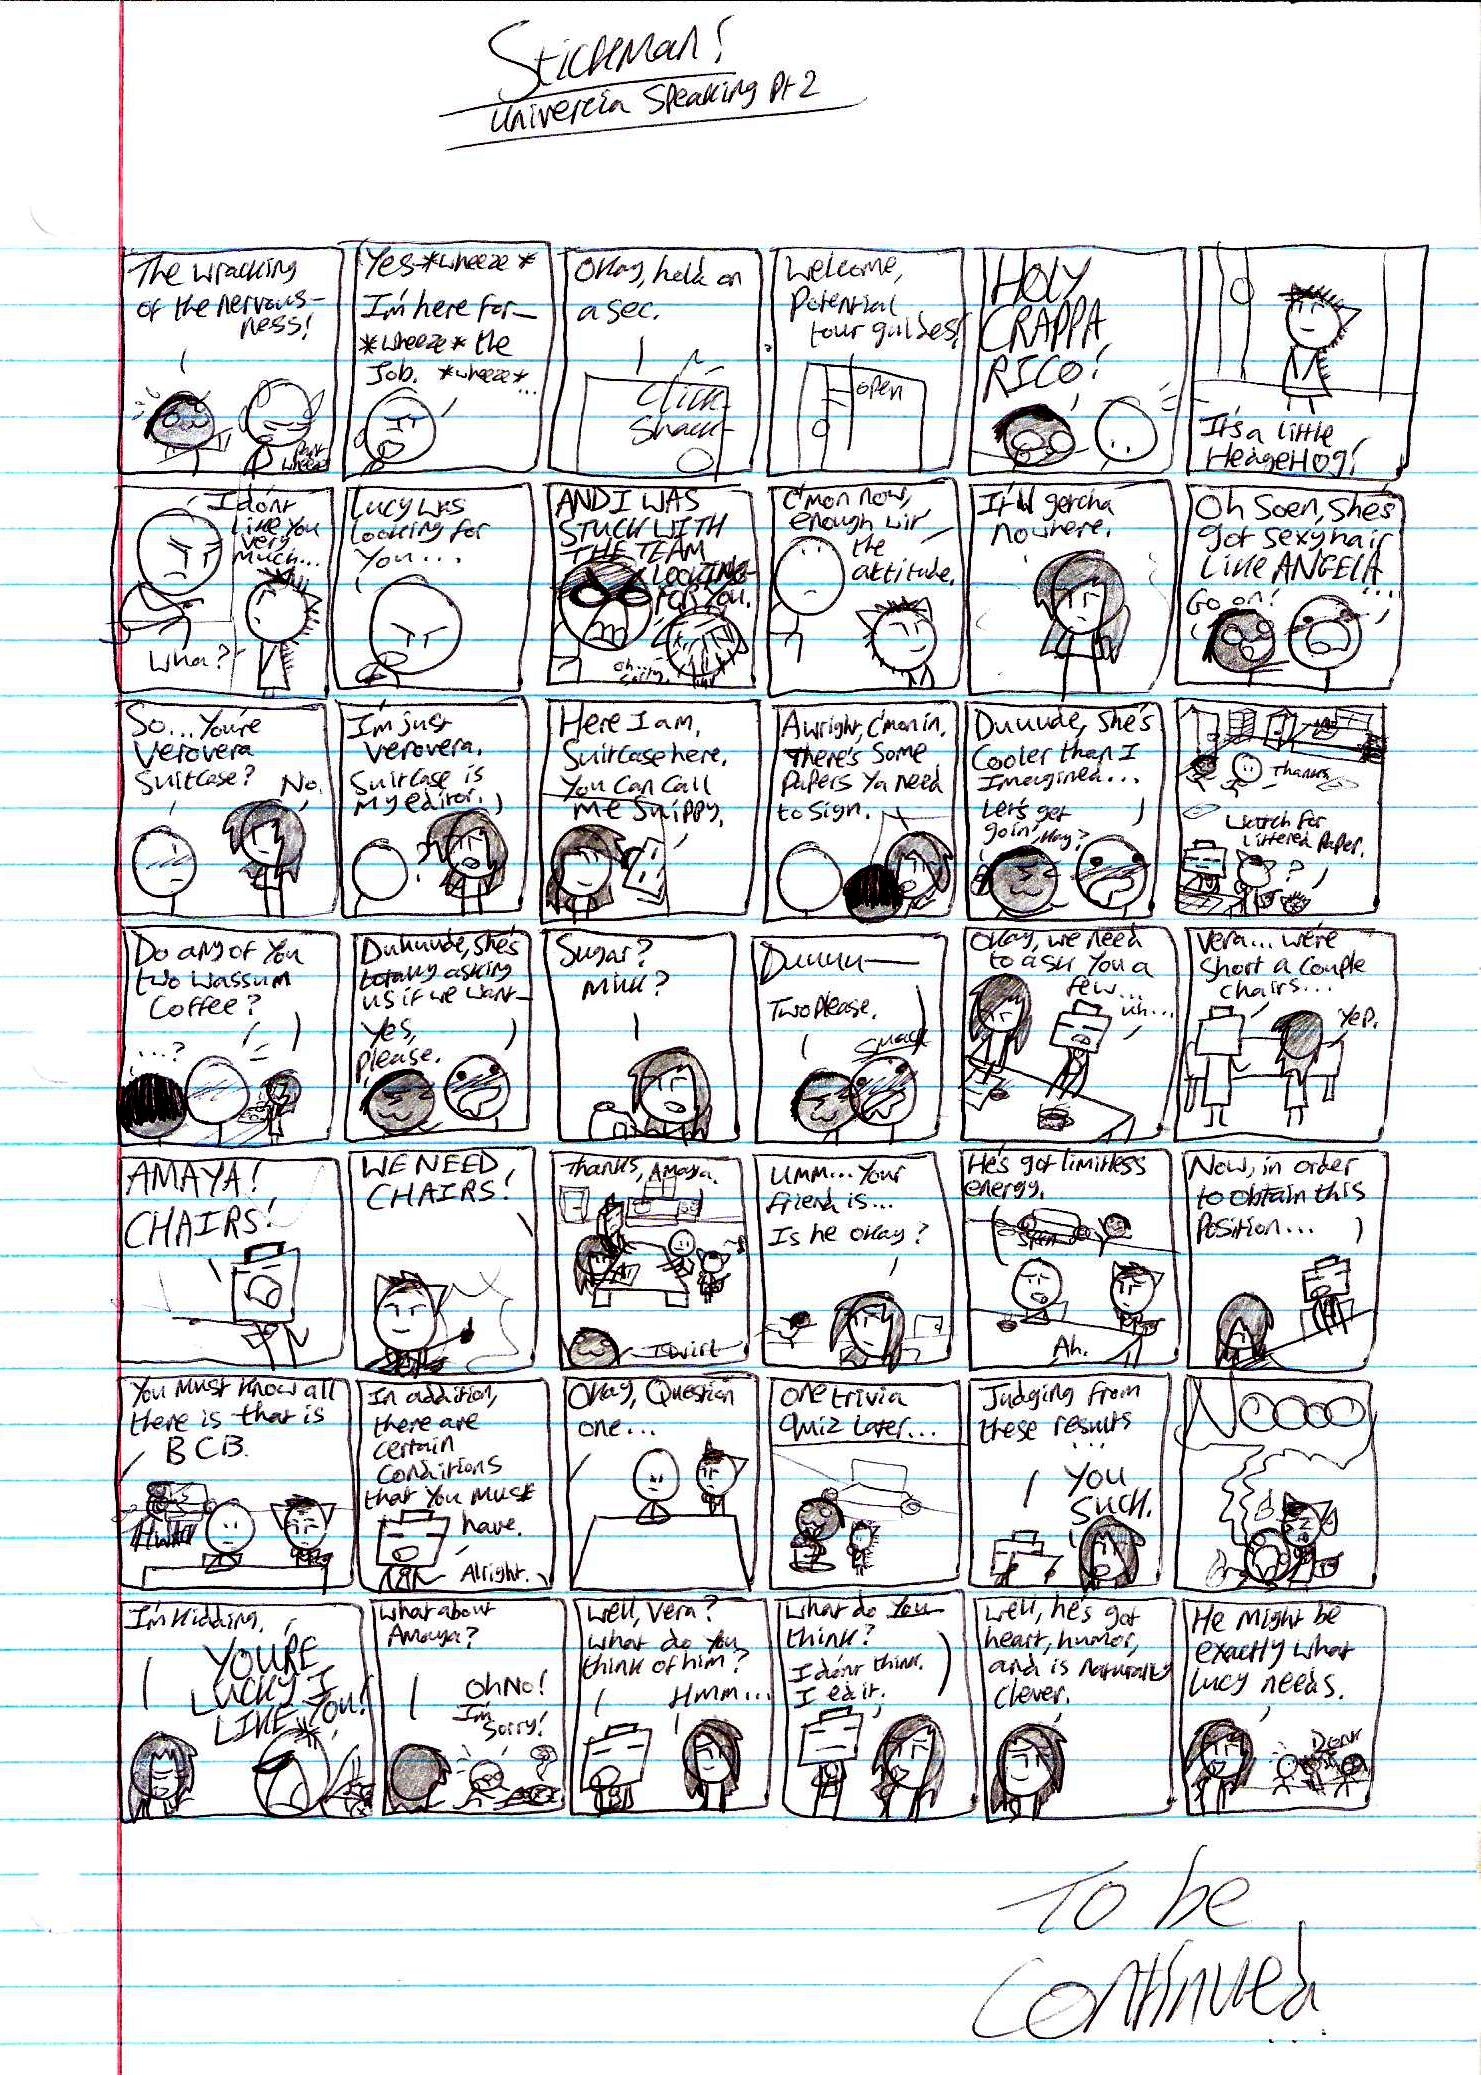 Stickman!
Univercia Speaking Pt 2
The wracking
of the nervous-
ness!
Pant
wheeze
Yes *wheeze*
I'm here for-
*wheeze* the
Job. *wheeze*...
Okay, hold on
a sec.
Click-
Shack-
Welcome,
Potential
tour guides!
open
HOLY
CRAPPA
RICO!
It's a little
HedgeHog!
I don't
like you
very
much...
Wha?
Lucy was
looking for
You...
AND I WAS
STUCK WITH
THE TEAM
LOOKING
FOR YOU.
oh...
sorry.
C'mon now,
enough wit
the
attitude.
It'll getcha
nowhere.
Oh Soen, She's
got sexy hair
Like ANGELA
...
Go on!
So... You're
Verovera
Suitcase?
No.
I'm just
Verovera.
Suitcase is
My editor.
Here I am,
Suitcase here.
You can call
me Snippy.
Awright, C'mon in.
There's Some
Papers Ya need
to Sign.
Duuude, She's
Cooler than I
Imagined...
Let's get
goin', Okay?
Thanks
Watch for
Littered Paper.
?
Do any of You
two wassum
Coffee?
...?
Duuuude, she's
totally asking
us if we want-
Yes,
Please.
Sugar?
Milk?
Duuuu-
Two please.
SMACK
Okay, we need
to ask You a
few...
uh...
Vera... we're
short a couple
chairs...
Yep.
AMAYA!
CHAIRS!
WE NEED
CHAIRS!
Thanks, Amaya.
Twirl
Umm... Your
friend is...
Is he okay?
He's got limitless
energy.
Spin
Ah.
Now, in order
to obtain this
Position...
You Must Know all
there is that is
BCB.
In addition,
there are
certain
conditions
that You Must
have.
Alright.
Okay, Question
one...
One trivia
Quiz Later...
Judging from
these results
...
YOU
SUCK.
Noooo
I'm Kidding.
YOU'RE
LUCKY I
LIKE YOU!
What about
Amaya?
Oh No!
I'm
Sorry!
Well, Vera?
What do you
think of him?
Hmm...
What do You
think?
I don't think.
I edit.
Well, he's got
heart, humor,
and is naturally
clever.
He might be
exactly what
Lucy needs.
To be
Continued
...